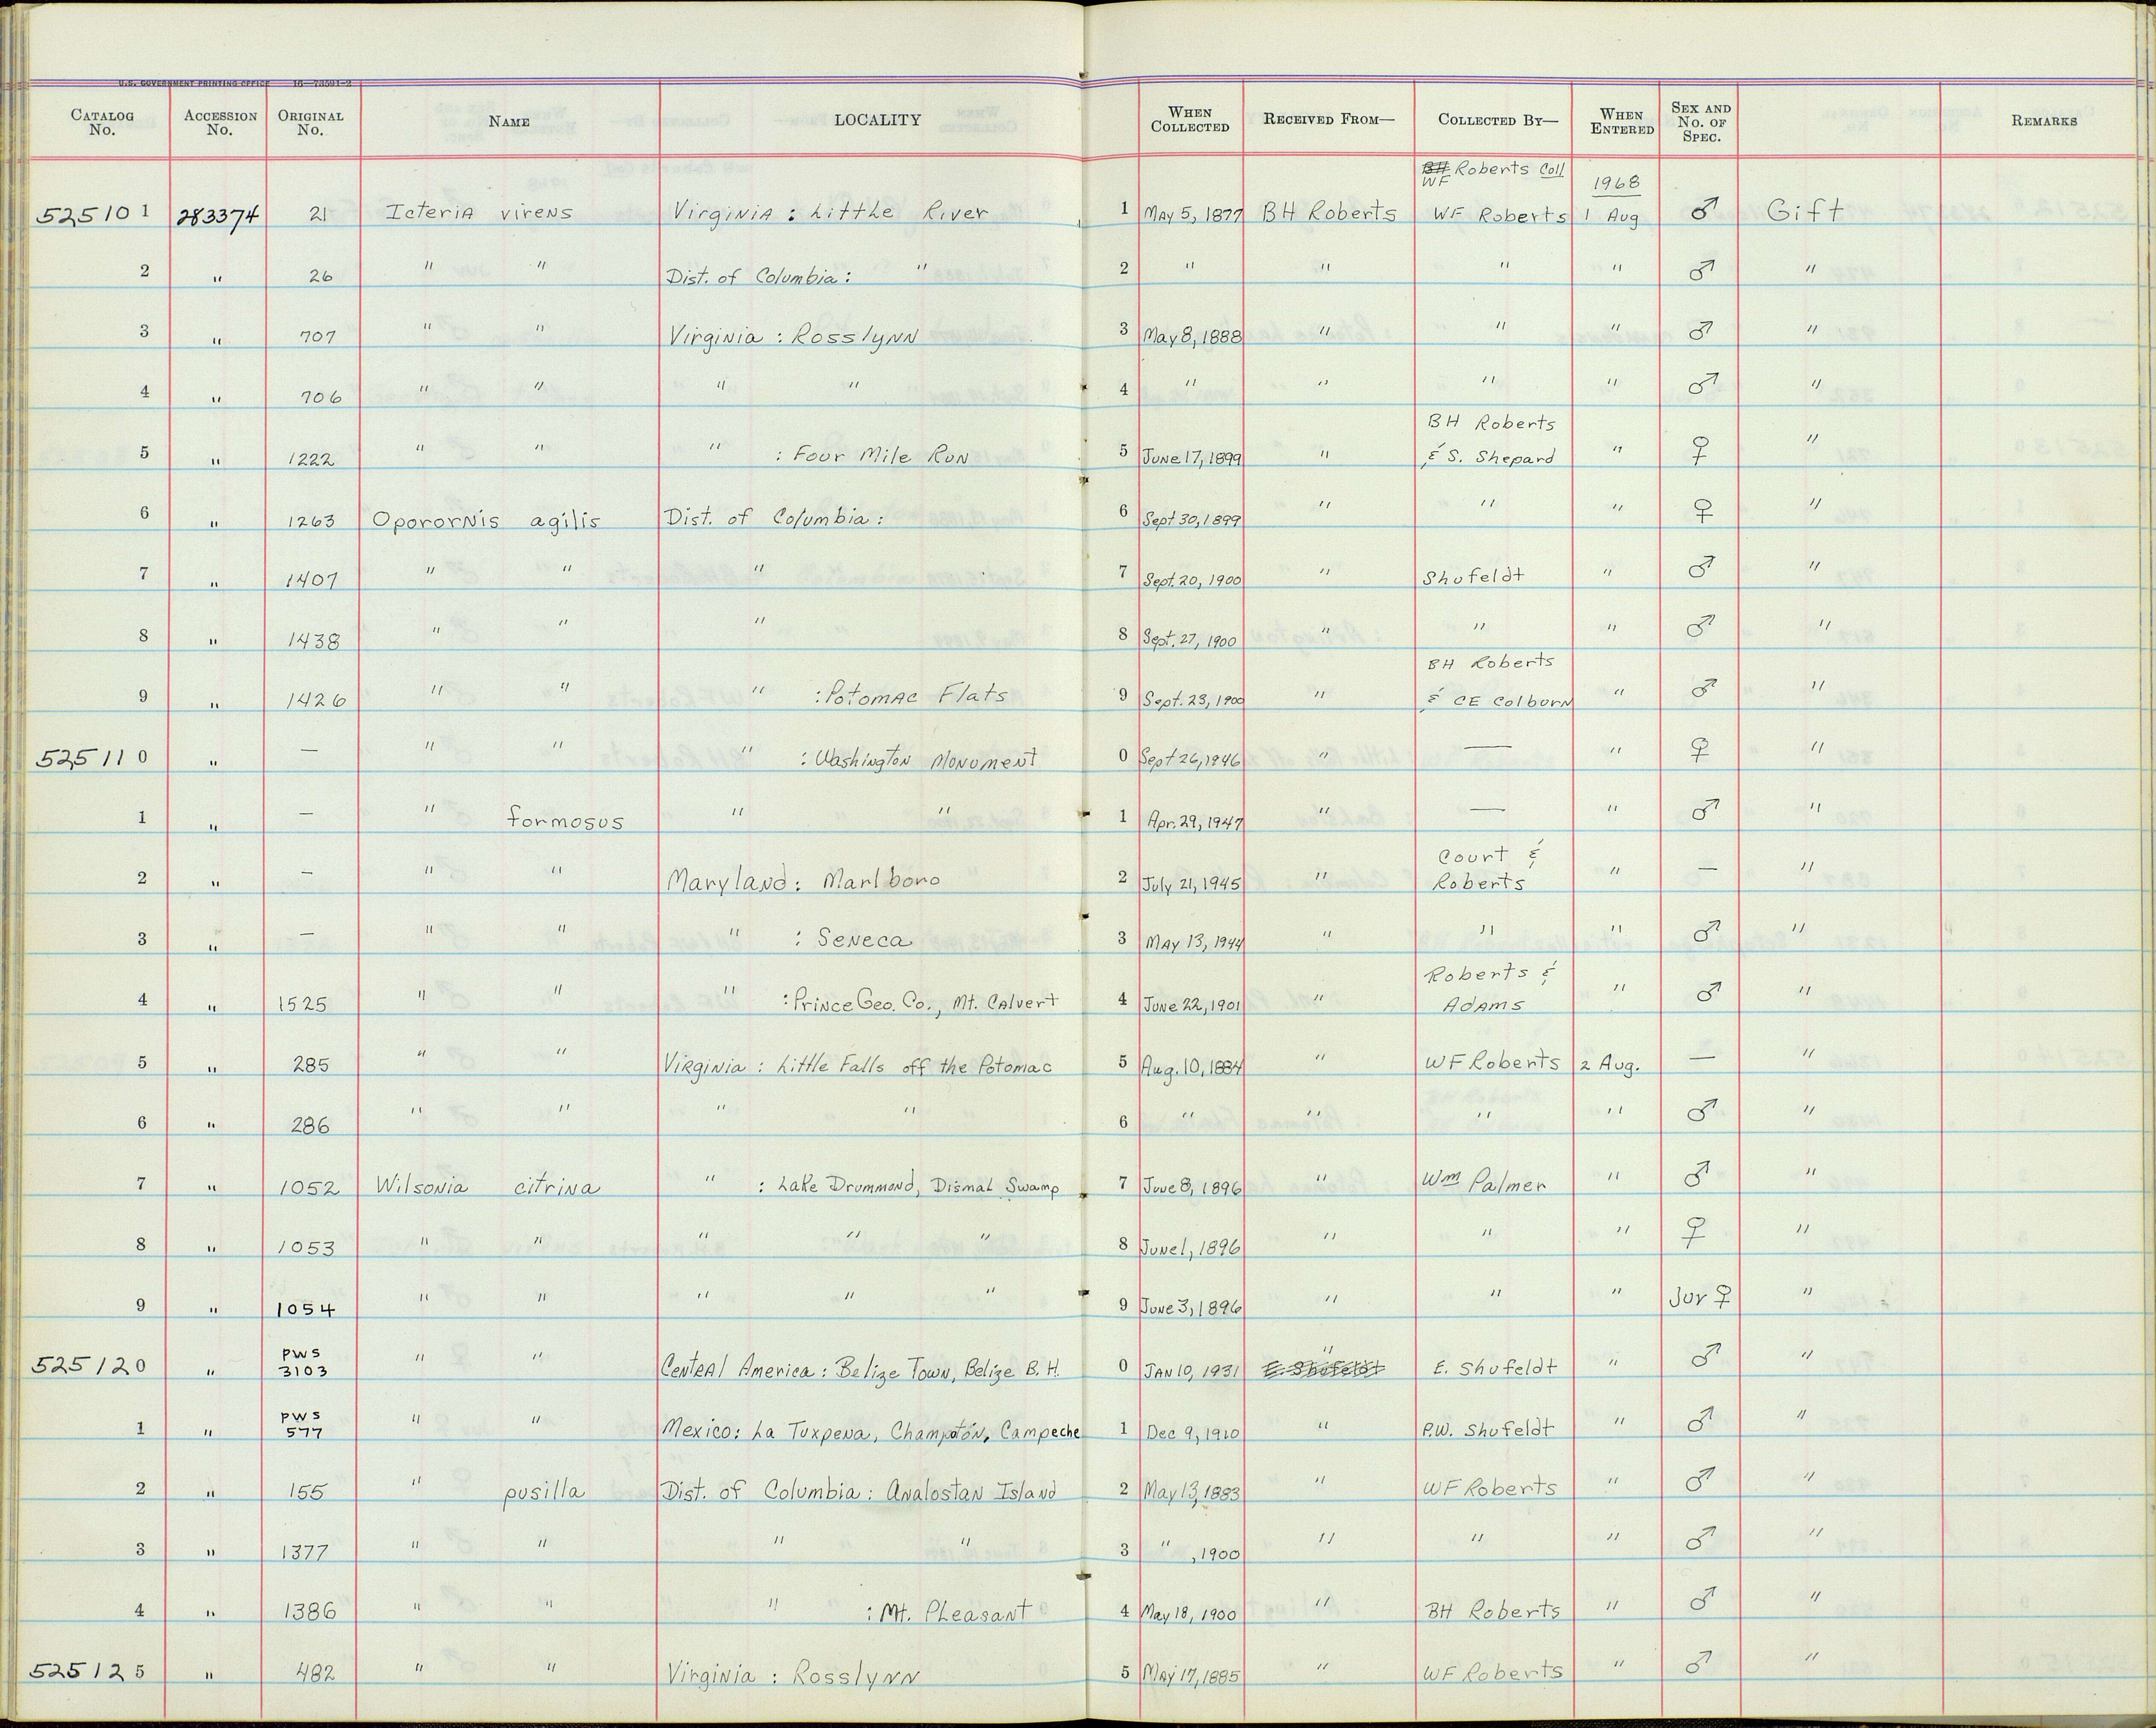 U.S. GOVERNMENT PRINTING OFFICE 16—73591-2
CATALOG No. ACCESSION No. ORIGINAL No. NAME LOCALITY WHEN COLLECTED RECEIVED FROM— COLLECTED BY— WHEN ENTERED SEX AND No. OF SPEC. REMARKS
BH Roberts Coll
WF 1968
525101 283374 21 Icteria virens Virginia : Little River 1 May 5, 1877 BH Roberts WF Roberts 1 Aug ♂ Gift
2 " 26 " " Dist. of Columbia : " 2 " " " " ♂ "
3 " 707 " " Virginia : Rosslynn 3 May 8, 1888 " " " ♂ "
4 " 706 " " " " 4 " " " " ♂ "
BH Roberts
5 " 1222 " " " : Four Mile Run 5 June 17, 1899 " & S. Shepard " ♀ "
6 " 1263 Oporornis agilis Dist. of Columbia : 6 Sept 30, 1899 " " " ♀ "
7 " 1407 " " " 7 Sept. 20, 1900 " Shufeldt " ♂ "
8 " 1438 " " " 8 Sept. 27, 1900 " " " ♂ "
BH Roberts
9 " 1426 " " " : Potomac Flats 9 Sept. 23, 1900 " & CE Colburn " ♂ "
525110 " — " " " : Washington Monument 0 Sept 26, 1946 " — " ♀ "
1 " — " formosus " " 1 Apr. 29, 1947 " — " ♂ "
Court &
2 " — " " Maryland : Marlboro 2 July 21, 1945 " Roberts " — "
3 " — " " " : Seneca 3 May 13, 1944 " " " ♂ "
Roberts &
4 " 1525 " " " : Prince Geo. Co., Mt. Calvert 4 June 22, 1901 " Adams " ♂ "
5 " 285 " " Virginia : Little Falls off the Potomac 5 Aug. 10, 1884 " WF Roberts 2 Aug. — "
6 " 286 " " " " 6 " " " " ♂ "
7 " 1052 Wilsonia citrina " : Lake Drummond, Dismal Swamp 7 June 8, 1896 " Wm Palmer " ♂ "
8 " 1053 " " " " " 8 June 1, 1896 " " " ♀ "
9 " 1054 " " " " " 9 June 3, 1896 " " " Juv ♀ "
PWS "
525120 " 3103 " " Central America : Belize Town, Belize B. H. 0 Jan 10, 1931 E. Shufeldt E. Shufeldt " ♂ "
PWS
1 " 577 " " Mexico : La Tuxpena, Champotón, Campeche 1 Dec 9, 1910 " P.W. Shufeldt " ♂ "
2 " 155 " pusilla Dist. of Columbia : Analostan Island 2 May 13, 1883 " WF Roberts " ♂ "
3 " 1377 " " " " 3 " , 1900 " " " ♂ "
4 " 1386 " " " : Mt. Pleasant 4 May 18, 1900 " BH Roberts " ♂ "
525125 " 482 " " Virginia : Rosslynn 5 May 17, 1885 " WF Roberts " ♂ "